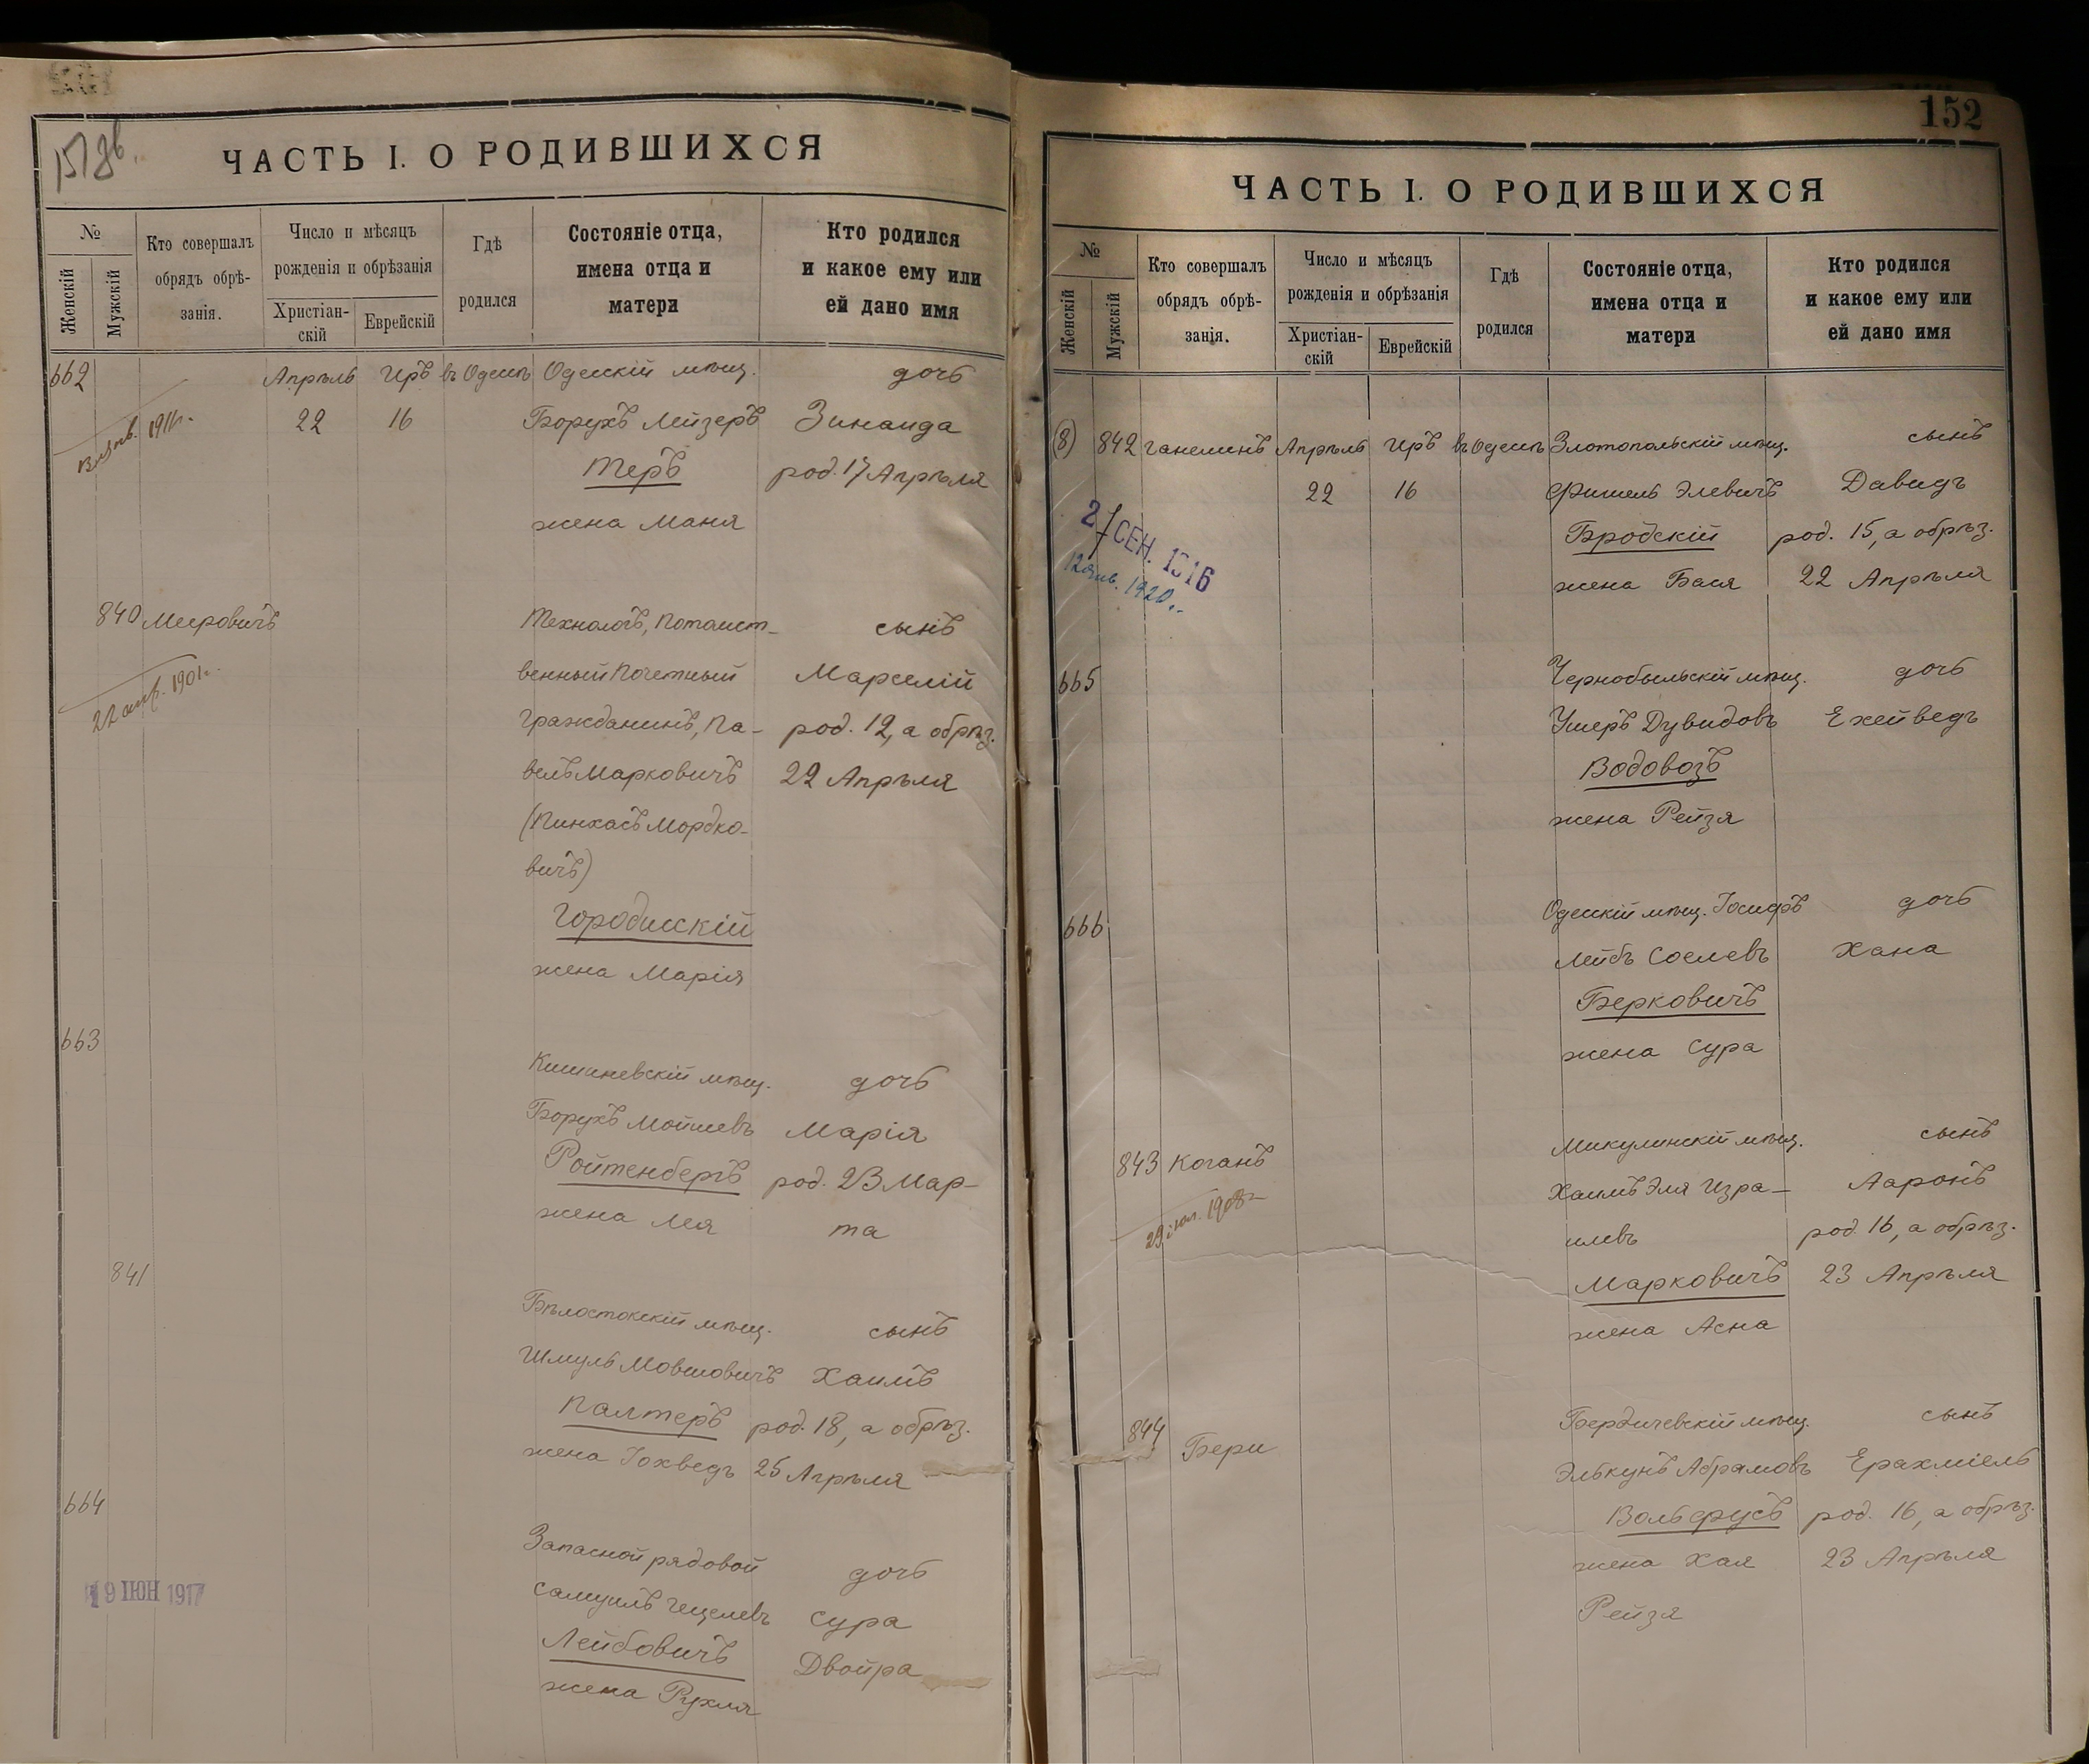 ЧАСТЬ I. О РОДИВШИХСЯ
№
Женскій
Мужскій
Кто совершалъ
обрядъ обрѣ-
занія.
Число и мѣсяцъ
рожденія и обрѣзанія
Христіан-
скій
Еврейскій
Гдѣ
родился
Состояніе отца,
имена отца и
матери
Кто родился
и какое ему или
ей дано имя
662 Апрѣль Иръ въ Одессѣ Одесскій мѣщ. дочь
1911г. 22 16 Борухъ Лейзеръ Зинаида
Теръ род. 17 Апрѣля
жена Маня
840 Мееровичъ Технологъ, Потомст- сынъ
22 апр. 1901г. венный Почетный Марселій
Гражданинъ, Па- род. 12, а обрѣз.
велъ Марковичъ 22 Апрѣля
(Пинхасъ Мордко-
вичъ)
Городисскій
жена Марія
663 Кишиневскій мѣщ. дочь
Борухъ Мошиевъ Марія
Ройтенбергъ род. 23 Мар-
жена Лея та
841 Бѣлостокскій мѣщ. сынъ
Шмуль Мовшовичъ Хаимъ
Палтеръ род. 18, а обрѣз.
жена Іохведъ 25 Апрѣля
664 Запасной рядовой дочь
9 ІЮН 1917 Самуилъ Гецелевъ Сура
Лейбовичъ Двойра
жена Рухля
152
ЧАСТЬ I. О РОДИВШИХСЯ
№
Женскій
Мужскій
Кто совершалъ
обрядъ обрѣ-
занія.
Число и мѣсяцъ
рожденія и обрѣзанія
Христіан-
скій
Еврейскій
Гдѣ
родился
Состояніе отца,
имена отца и
матери
Кто родился
и какое ему или
ей дано имя
(8) 842 Ганелинъ Апрѣль Иръ въ Одессѣ Златопольскій мѣщ. сынъ
22 16 Фишель Элевичъ Давидъ
27 СЕН. 1916 Бродскій род. 15, а обрѣз.
12 янв. 1920г. жена Бася 22 Апрѣля
665 Чернобыльскій мѣщ. дочь
Ушеръ Дувидовъ Ехейведъ
Водовозъ
жена Рейзя
666 Одесскій мѣщ. Іосифъ дочь
Лейбъ Соелевъ Хана
Берковичъ
жена Сура
843 Коганъ Микулинскій мѣщ. сынъ
1908г. Хаимъ Эля Изра- Ааронъ
илевъ род. 16, а обрѣз.
Марковичъ 23 Апрѣля
жена Асна
844 Бери Бердичевскій мѣщ. сынъ
Элькунъ Абрамовъ Ерахміель
Вольфусъ род. 16, а обрѣз.
жена Хая 23 Апрѣля
Рейзя